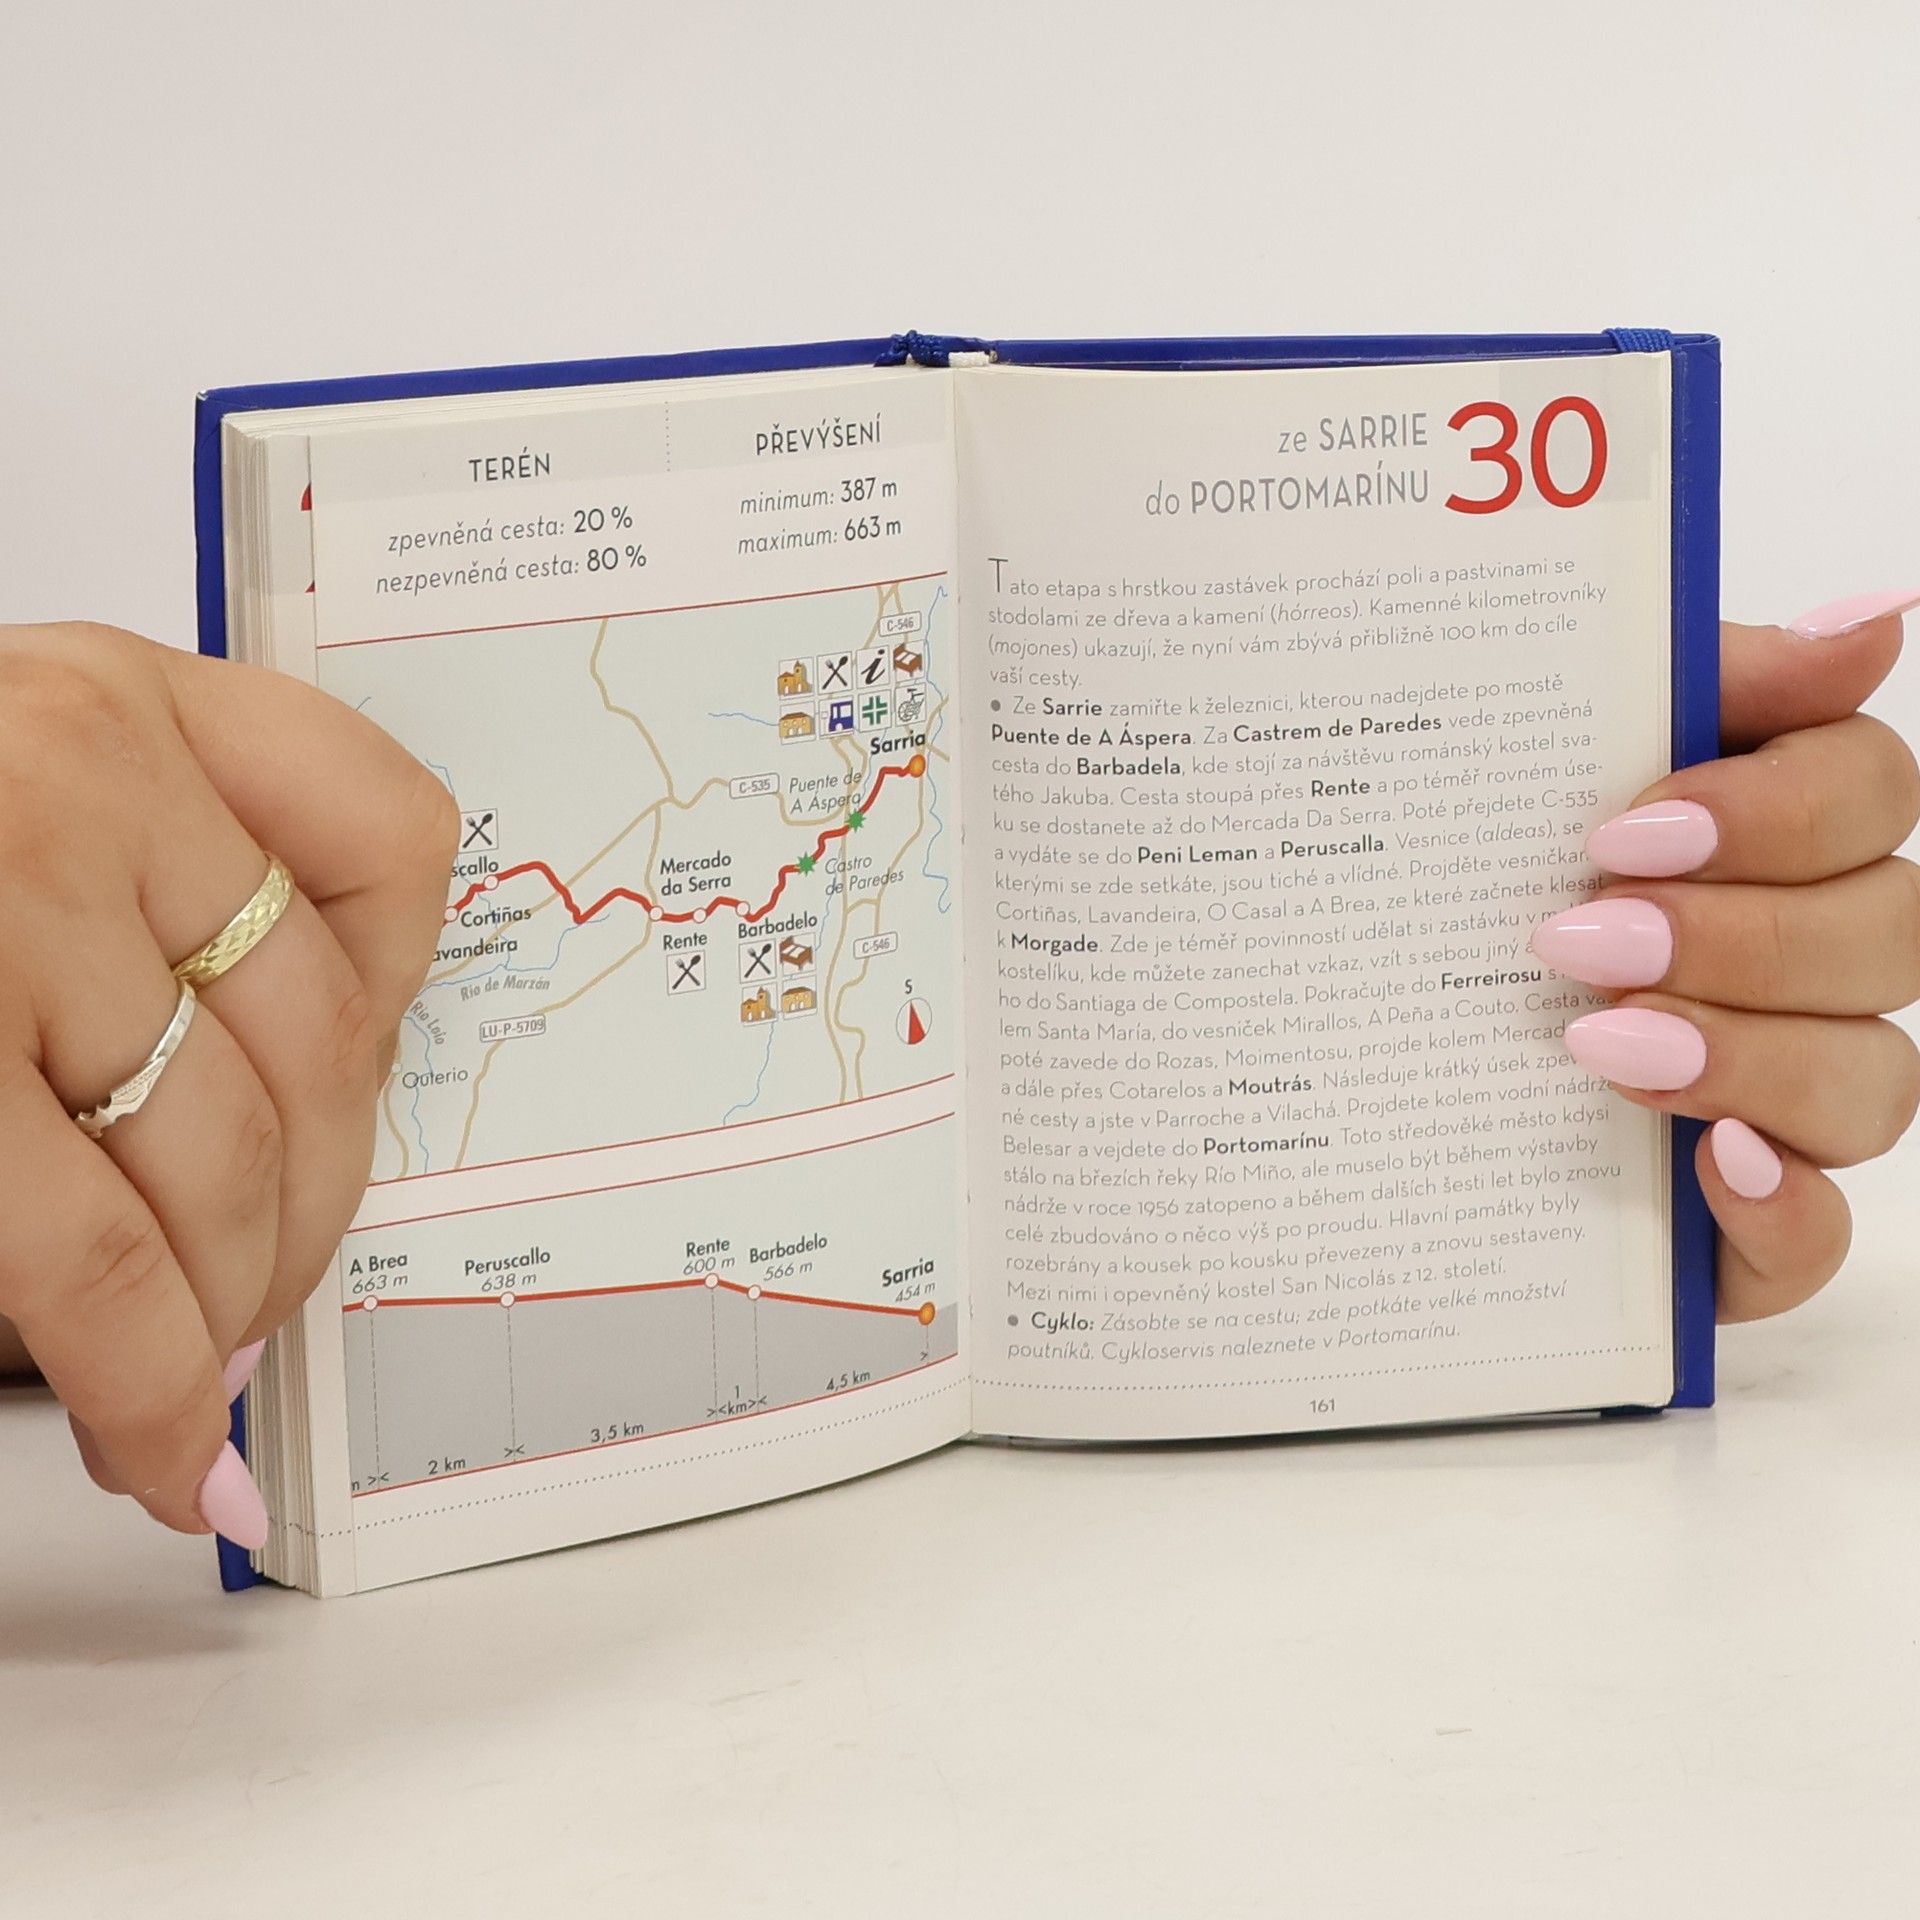 TERÉN
zpevněná cesta: 20 %
nezpevněná cesta: 80 %
PŘEVÝŠENÍ
minimum: 387 m
maximum: 663 m
C-546
Sarria
C-535
Puente de
A Áspera
Castro
de Paredes
Mercado
da Serra
scallo
Cortiñas
avandeira
Barbadelo
Rente
C-546
Río de Marzán
Río Loio
LU-P-5709
S
Outerio
A Brea
663 m
Peruscallo
638 m
Rente
600 m
Barbadelo
566 m
Sarria
454 m
2 km
3,5 km
1
km
4,5 km
ze SARRIE
do PORTOMARÍNU
30
Tato etapa s hrstkou zastávek prochází poli a pastvinami se
stodolami ze dřeva a kamení (hórreos). Kamenné kilometrovníky
(mojones) ukazují, že nyní vám zbývá přibližně 100 km do cíle
vaší cesty.
• Ze Sarrie zamiřte k železnici, kterou nadejdete po mostě
Puente de A Áspera. Za Castrem de Paredes vede zpevněná
cesta do Barbadela, kde stojí za návštěvu románský kostel sva-
tého Jakuba. Cesta stoupá přes Rente a po téměř rovném úse-
ku se dostanete až do Mercada Da Serra. Poté přejdete C-535
a vydáte se do Peni Leman a Peruscalla. Vesnice (aldeas), se
kterými se zde setkáte, jsou tiché a vlídné. Projděte
Cortiñas, Lavandeira, O Casal a A Brea, ze které začnete klesat
k Morgade. Zde je téměř povinností udělat si zastávku v
kostelíku, kde můžete zanechat vzkaz, vzít s sebou jiný a
ho do Santiaga de Compostela. Pokračujte do Ferreirosu s
lem Santa María, do vesniček Mirallos, A Peña a Couto. Cesta
poté zavede do Rozas, Moimentosu, projde kolem
a dále přes Cotarelos a Moutrás. Následuje krátký úsek
né cesty a jste v Parroche a Vilachá. Projdete kolem vodní nádrže
Belesar a vejdete do Portomarínu. Toto středověké město kdysi
stálo na březích řeky Río Miño, ale muselo být během výstavby
nádrže v roce 1956 zatopeno a během dalších šesti let bylo znovu
celé zbudováno o něco výš po proudu. Hlavní památky byly
rozebrány a kousek po kousku převezeny a znovu sestaveny.
Mezi nimi i opevněný kostel San Nicolás z 12. století.
• Cyklo: Zásobte se na cestu; zde potkáte velké množství
poutníků. Cykloservis naleznete v Portomarínu.
161